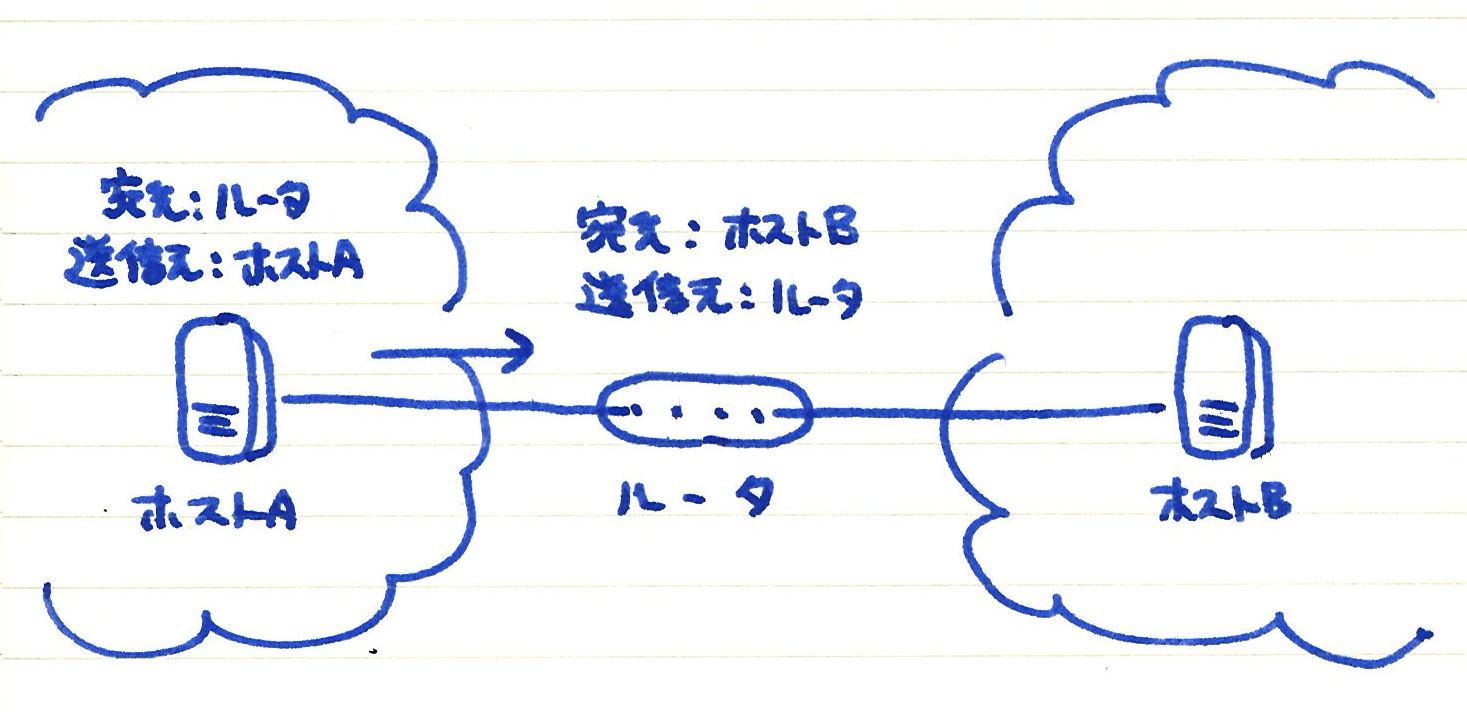 宛先:ルータ
送信元:ホストA
宛先:ホストB
送信元:ルータ
ホストA
ルータ
ホストB